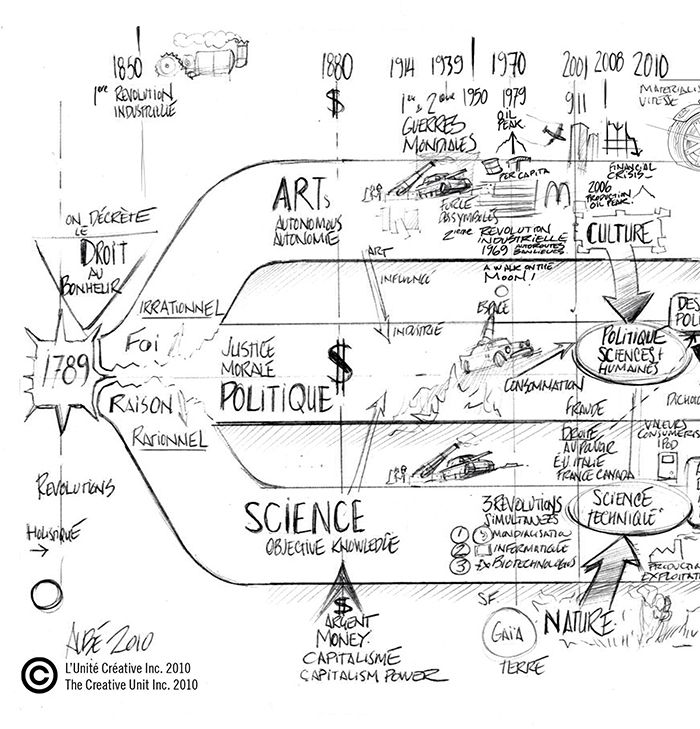 1850
1880
1914
1939
1970
2001
2008
2010
1ère RÉVOLUTION
INDUSTRIELLE
$
1ère & 2ème
GUERRES
MONDIALES
1950
1979
OIL
PEAK
PER CAPITA
911
FINANCIAL
CRISIS
2006
PRODUCTION
OIL PEAK
MATERIALIS
VITESSE
ON DÉCRÈTE
LE
DROIT
AU
BONHEUR
ARTS
AUTONOMOUS
AUTONOMIE
FORCE
DES SYMBOLES
2ième REVOLUTION
INDUSTRIELLE
1969 AUTOROUTES
BANLIEUES
A WALK ON THE
MOON!
CULTURE
ART
INFLUENCE
INDUSTRIE
ESPACE
IRRATIONNEL
FOI
1789
RAISON
RATIONNEL
JUSTICE
MORALE
POLITIQUE
$
CONSOMMATION
POLITIQUE
SCIENCES +
HUMAINES
DES
POLI
DICHO
FRAUDE
DROITE
AU POUVOIR
É.U ITALIE
FRANCE CANADA
VALEURS
CONSUMERIS
IPOD
REVOLUTIONS
HOLISTIQUE
SCIENCE
OBJECTIVE KNOWLEDGE
3 REVOLUTIONS
SIMULTANÉES
1 MONDIALISATION
2 INFORMATIQUE
3 BIOTECHNOLOGIES
SCIENCE
TECHNIQUE+
PRODUCTION
EXPLOITAT
$
ARGENT
MONEY.
CAPITALISME
CAPITALISM POWER
SF
GAÏA
TERRE
NATURE
AUBÉ 2010
© L'Unité Créative Inc. 2010
The Creative Unit Inc. 2010